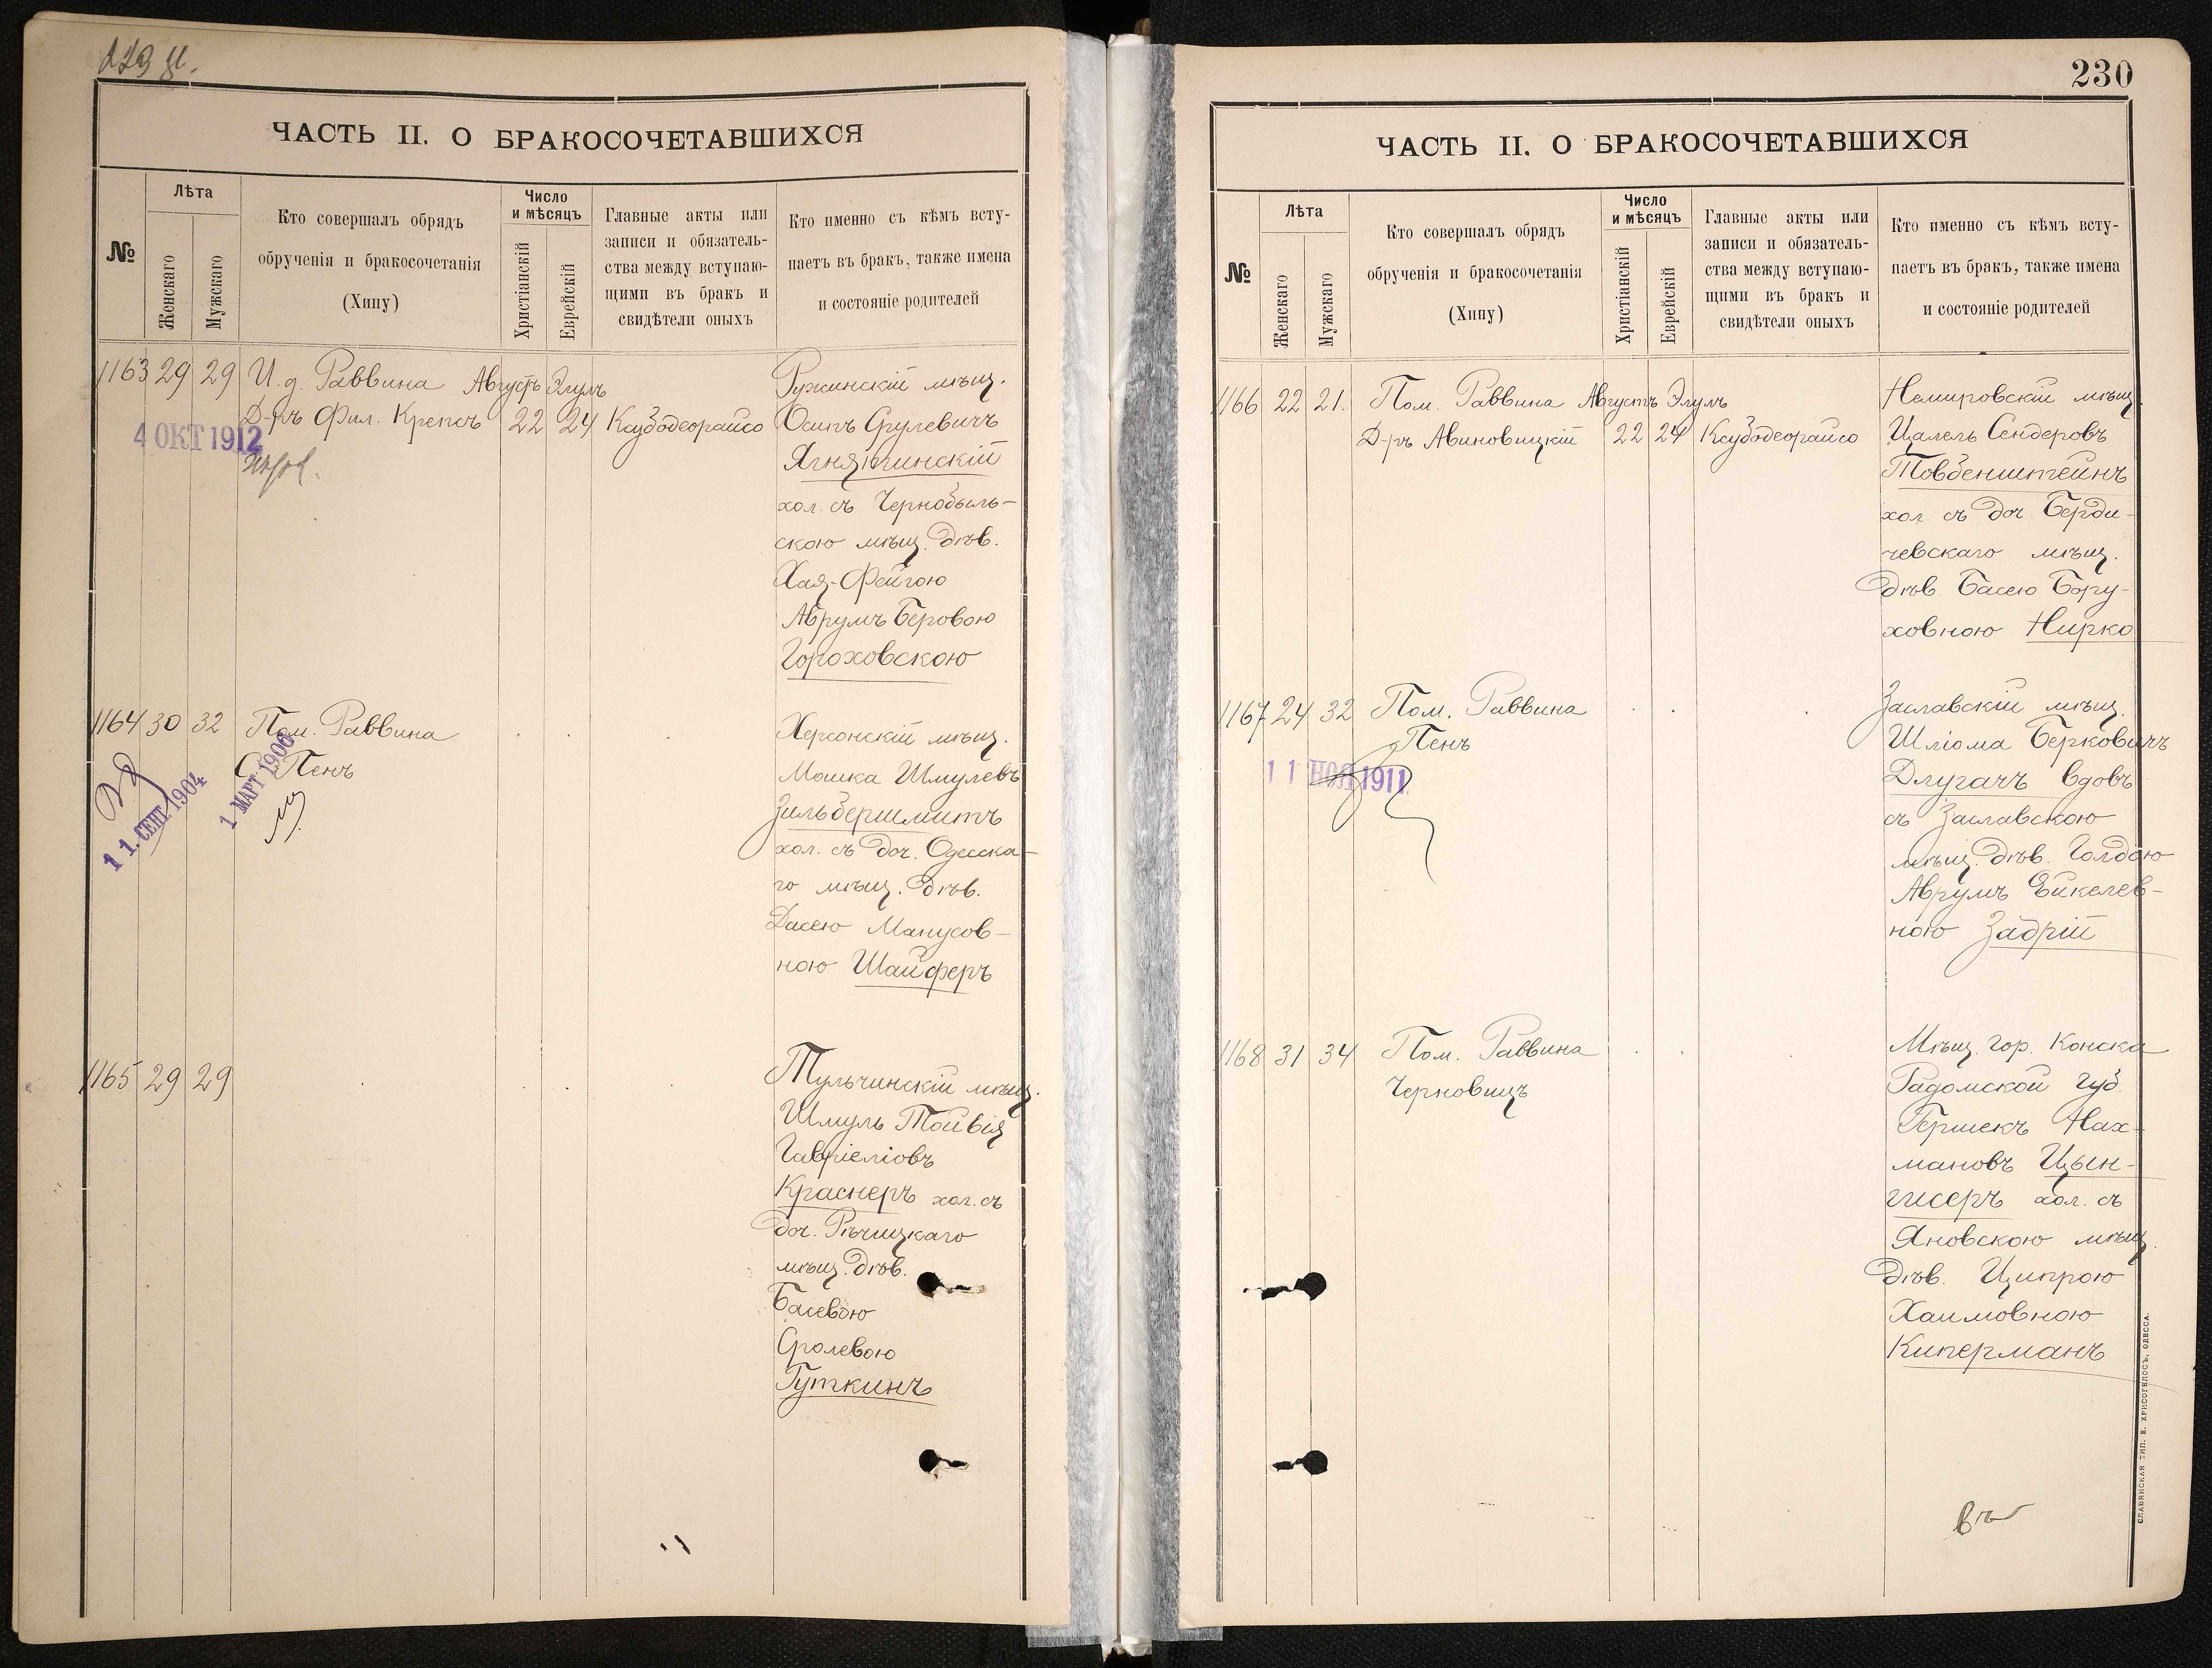 ЧАСТЬ II. О БРАКОСОЧЕТАВШИХСЯ
№
Лѣта
Женскаго
Мужскаго
Кто совершалъ обрядъ
обрученія и бракосочетанія
(Хипу)
Число
и мѣсяцъ
Христіанскій
Еврейскій
Главные акты или
записи и обязатель-
ства между вступаю-
щими въ бракъ и
свидѣтели оныхъ
Кто именно съ кѣмъ всту-
паетъ въ бракъ, также имена
и состояніе родителей
1163 29 29 И. д. Раввина Августъ Элулъ
Д-ръ Фил. Крепсъ 22 24 Ксубодеорайсо
4 ОКТ 1912
Ружинскій мѣщ.
Осипъ Срулевичъ
Ягнятинскій
хол. съ Чернобыль-
скою мѣщ. дѣв.
Хая-Фейгою
Аврумъ Беровою
Гороховскою
1164 30 32 Пом. Раввина
С. Пенъ
11. СЕНТ. 1904
1 МАРТ 1906
Херсонскій мѣщ.
Мошка Шмулевъ
Зильбершмитъ
хол. съ доч. Одесска-
го мѣщ. дѣв.
Дасею Манусов-
ною Шайферъ
1165 29 29
Тульчинскій мѣщ.
Шмуль Тойвія
Гавріеліовъ
Краснеръ хол. съ
доч. Рѣчицкаго
мѣщ. дѣв.
Басевою
Сролевою
Гуткинъ
230
ЧАСТЬ II. О БРАКОСОЧЕТАВШИХСЯ
№
Лѣта
Женскаго
Мужскаго
Кто совершалъ обрядъ
обрученія и бракосочетанія
(Хипу)
Число
и мѣсяцъ
Христіанскій
Еврейскій
Главные акты или
записи и обязатель-
ства между вступаю-
щими въ бракъ и
свидѣтели оныхъ
Кто именно съ кѣмъ всту-
паетъ въ бракъ, также имена
и состояніе родителей
1166 22 21. Пом. Раввина Августъ Элулъ
Д-ръ Авиновицкій 22 24 Ксубодеорайсо
Немировскій мѣщ.
Цалель Сендеровъ
Товбенштейнъ
хол. съ доч. Берди-
чевскаго мѣщ.
дѣв. Басею Бору-
ховною Нирко
1167 24 32 Пом. Раввина
Пенъ
11 НОЯ 1911
Заславскій мѣщ.
Шліома Берковичъ
Длугачъ вдовъ
съ Заславскою
мѣщ. дѣв. Голдою
Аврумъ Ейкелев-
ною Задрій
1168 31 34 Пом. Раввина
Черновицъ
Мѣщ. гор. Конска
Радомской губ.
Гершекъ Нах-
мановъ Цын-
гисеръ хол. съ
Яновскою мѣщ.
дѣв. Ципрою
Хаимовною
Киперманъ
СЛАВЯНСКАЯ ТИП. Е. ХРИСОГЕЛОСЪ, ОДЕССА.